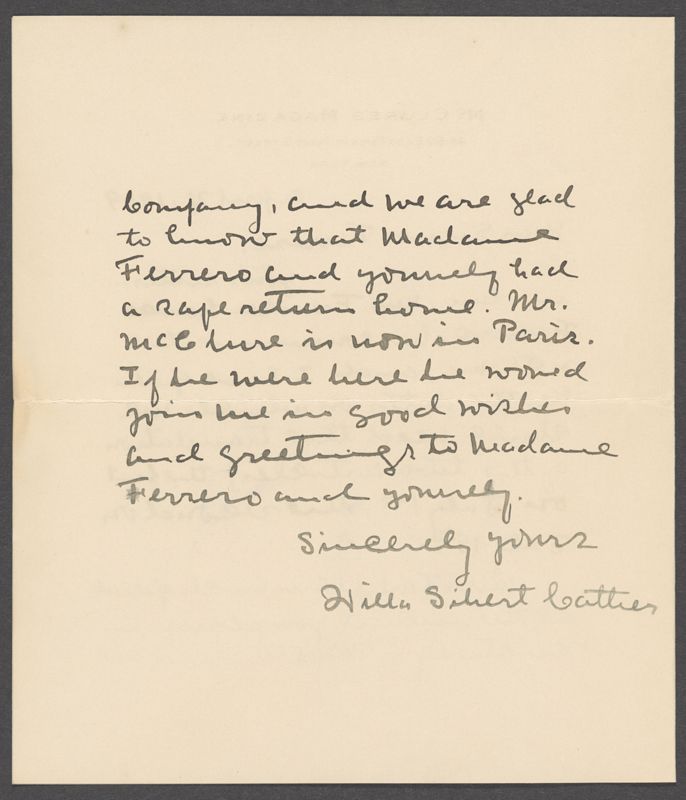 Company, and we are glad
to know that Madame
Ferrero and yourself had
a safe return home. Mr.
McClure is now in Paris.
If he were here he would
join me in good wishes
and greetings to Madame
Ferrero and yourself.
Sincerely yours
Willa Sibert Cather